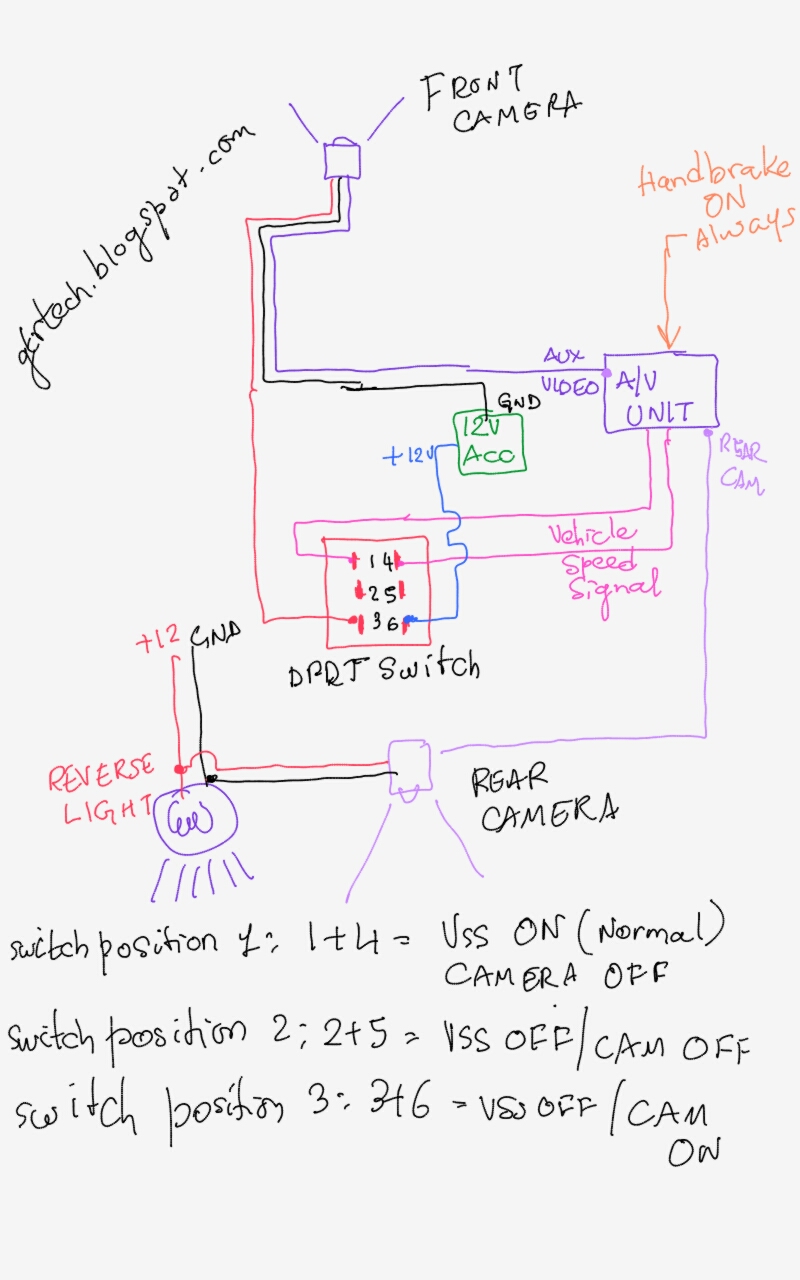 FRONT
CAMERA
gkrtech.blogspot.com
Handbrake
ON
Always
AUX
VIDEO
A/V
UNIT
GND
12V
ACC
+12V
REAR
CAM
Vehicle
Speed
Signal
1 4
2 5
3 6
DPDT Switch
+12 GND
REVERSE
LIGHT
REAR
CAMERA
switch position 1: 1+4 = VSS ON (Normal)
CAMERA OFF
switch position 2: 2+5 = VSS OFF/CAM OFF
switch position 3: 3+6 = VSS OFF/CAM
ON